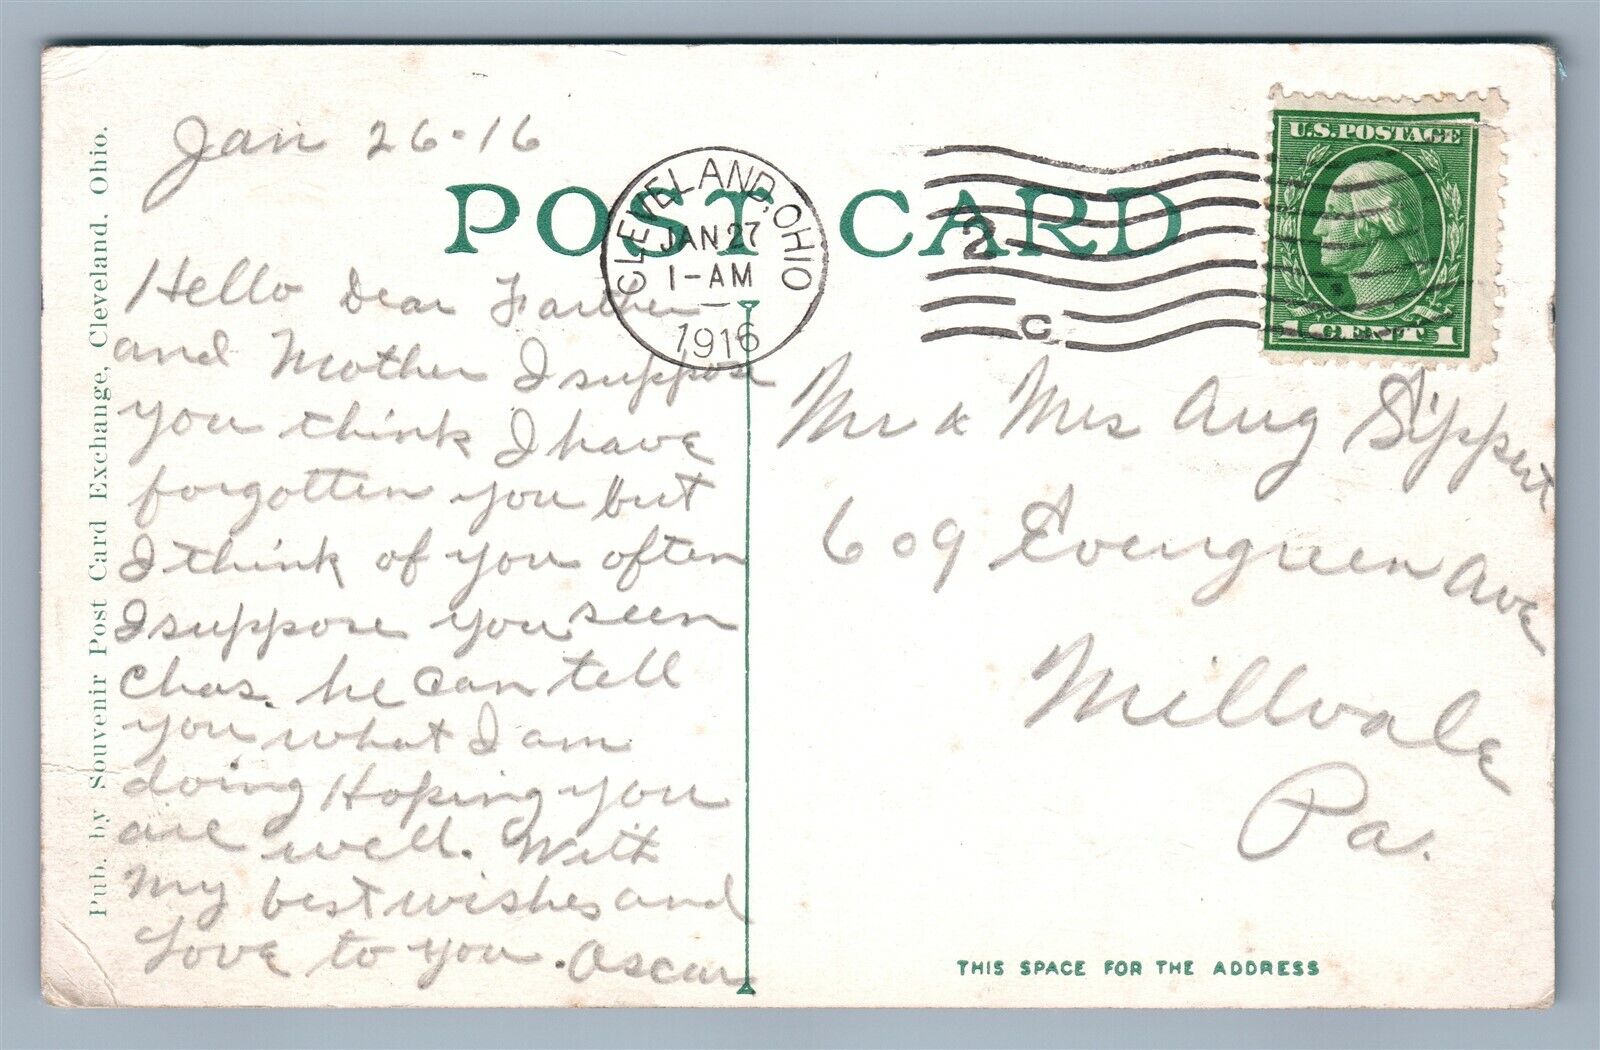 Pub. by Souvenir Post Card Exchange, Cleveland, Ohio.
Jan 26-16
POST CARD
CLEVELAND, OHIO
JAN 27
1-AM
1916
2
C
U.S. POSTAGE
1 CENT 1
Hello Dear Farther
and Mother I suppose
you think I have
forgotten you but
I think of you often
I suppose you seen
Chas. he can tell
you what I am
doing Hoping you
are well. With
my best wishes and
Love to you. Oscar
Mr & Mrs Aug Sippert
609 Evergreen Ave
Millvale
Pa.
THIS SPACE FOR THE ADDRESS